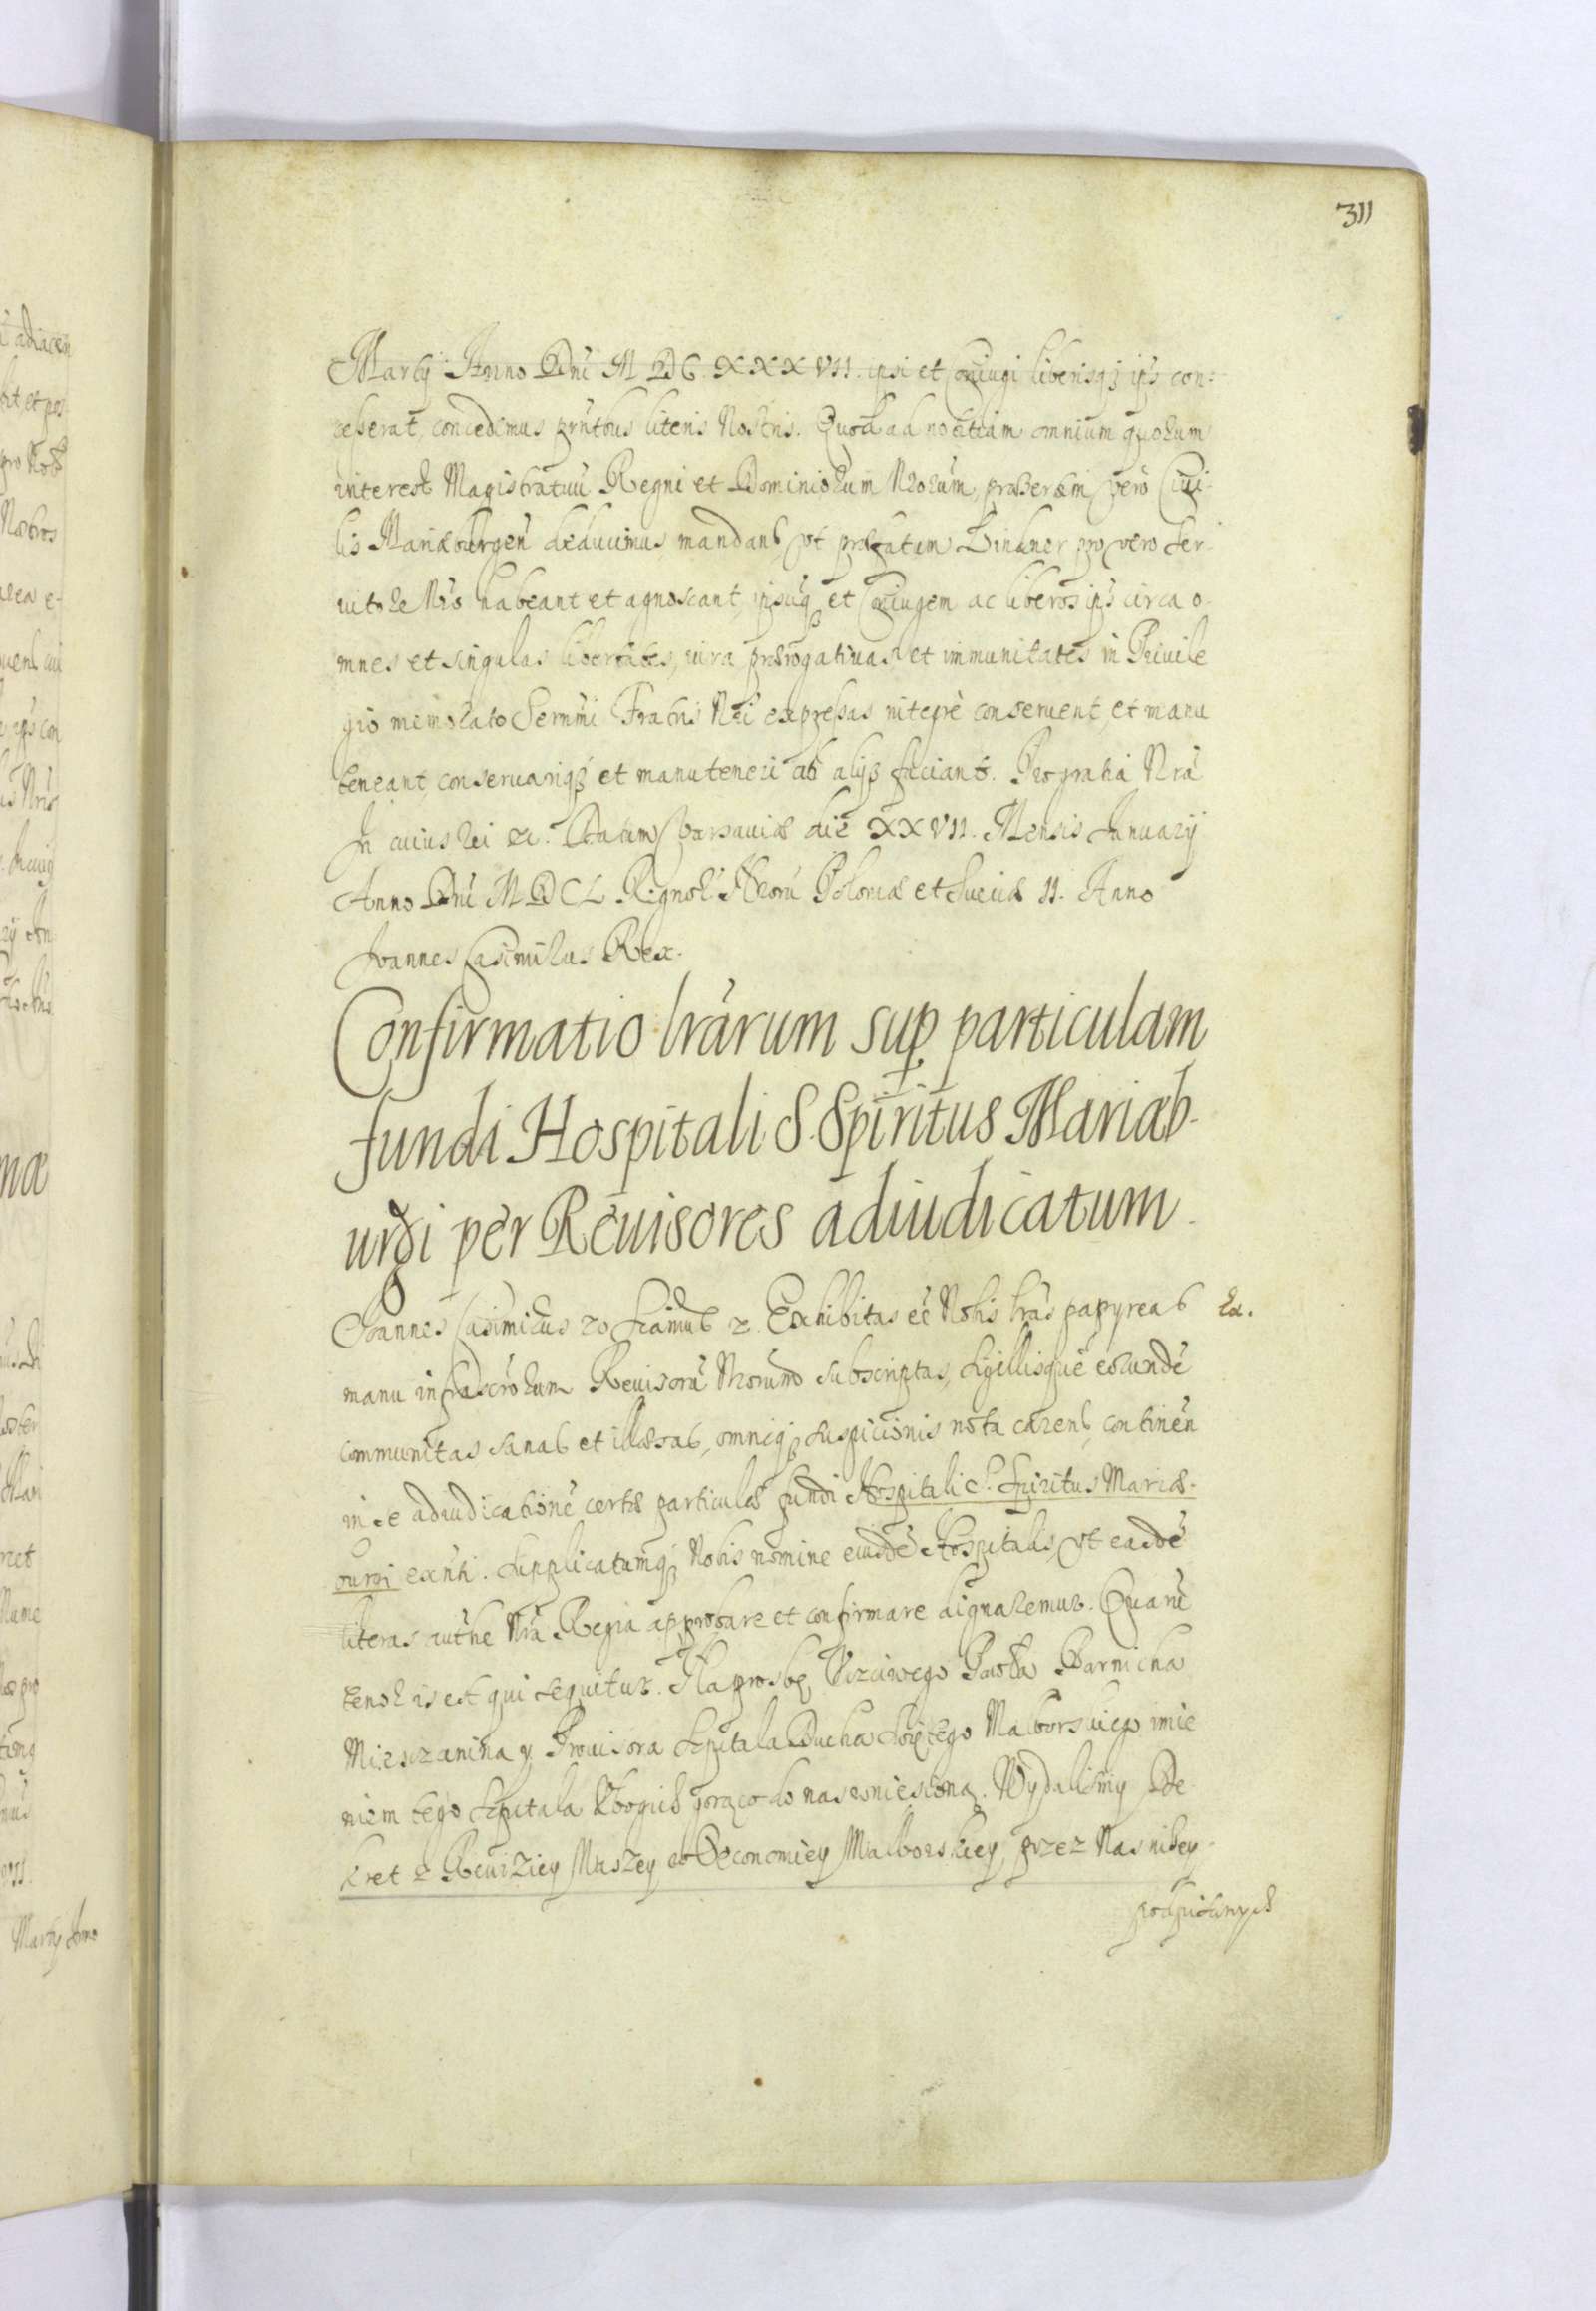 311
Martij Anno Dni M DC XXXVII. ipsi et Coniugi liberisq; ips con-
cesserat, concedimus prntbus literis Nostris. Quod ad notitiam omnium quorum
interest Magistratuu Regni et Dominiorum Nrorum, praesertim vero Civi-
lis Mariaeburgen deducimus, mandans, vt praefatum Linkner pro vero Ser-
uitore Nro habeant et agnoscant, ipsuq et Coniugem ac liberos ips circa o-
mnes et singulas libertates, iura, praerogatiuas et immunitates in Priuile
gio memorato Sermi Fratris Nri expressas integrè conseruent, et manu
teneant, conseruariq; et manuteneri ab alijs faciant. Pro gratia Nra
In cuius rei &. Datum Varsauiae die XXVII. Mensis January
Anno Dni M D C L Regnor Nroru Poloniae et Sueciae II. Anno
Joannes Casimirus Rex.
Confirmatio lrarum sup particulam
fundi Hospitali S. Spiritus Mariæb-
urgi per Reuisores adiudicatum.
Joannes Casimirus Exhibitas eē Nobis lras papyreas
manu infrascrorum Reuisorū Nrorum subscriptas, Sigillisque eorundē
communitas sanas et illaesas, omniq; suspicionis nota carens, continēn
in se adiudicationē certae particulae fundi Hospitali S. Spiritus Mariae-
burgi Supplicatumq; Nobis nomine eiusdē Hospitalis, vt easdē
literas authe Nra Regia approbare et confirmare dignaremur. Quarū
tenor is est qui sequitur. Na prosbę Vczciwego Pawła Barnicka
Miesczanina y Prouisora Szpitala Ducha Swiętego Malborskiego imie
niem tego Szpitala Vbogich gorąco do nas wniesioną. Wydalismy De
kret z Reuiziey Naszey w Oeconomiey Malborskiey, przez Nas niżey
podpisanych